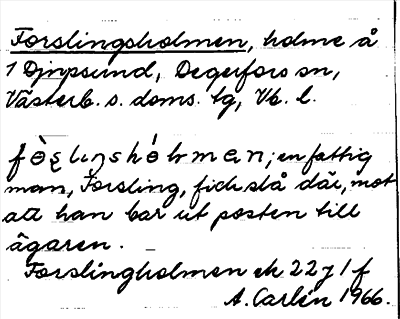 Forslingsholmen, holme å
1 Djupsund, Degerfors sn,
Västerb. s. doms. tg, Vb. l.
en fattig
man, Forsling, fick slå där, mot
att han bar ut posten till
ägaren.
Forslingholmen ek 22 j 1 f
A. Carlén 1966.